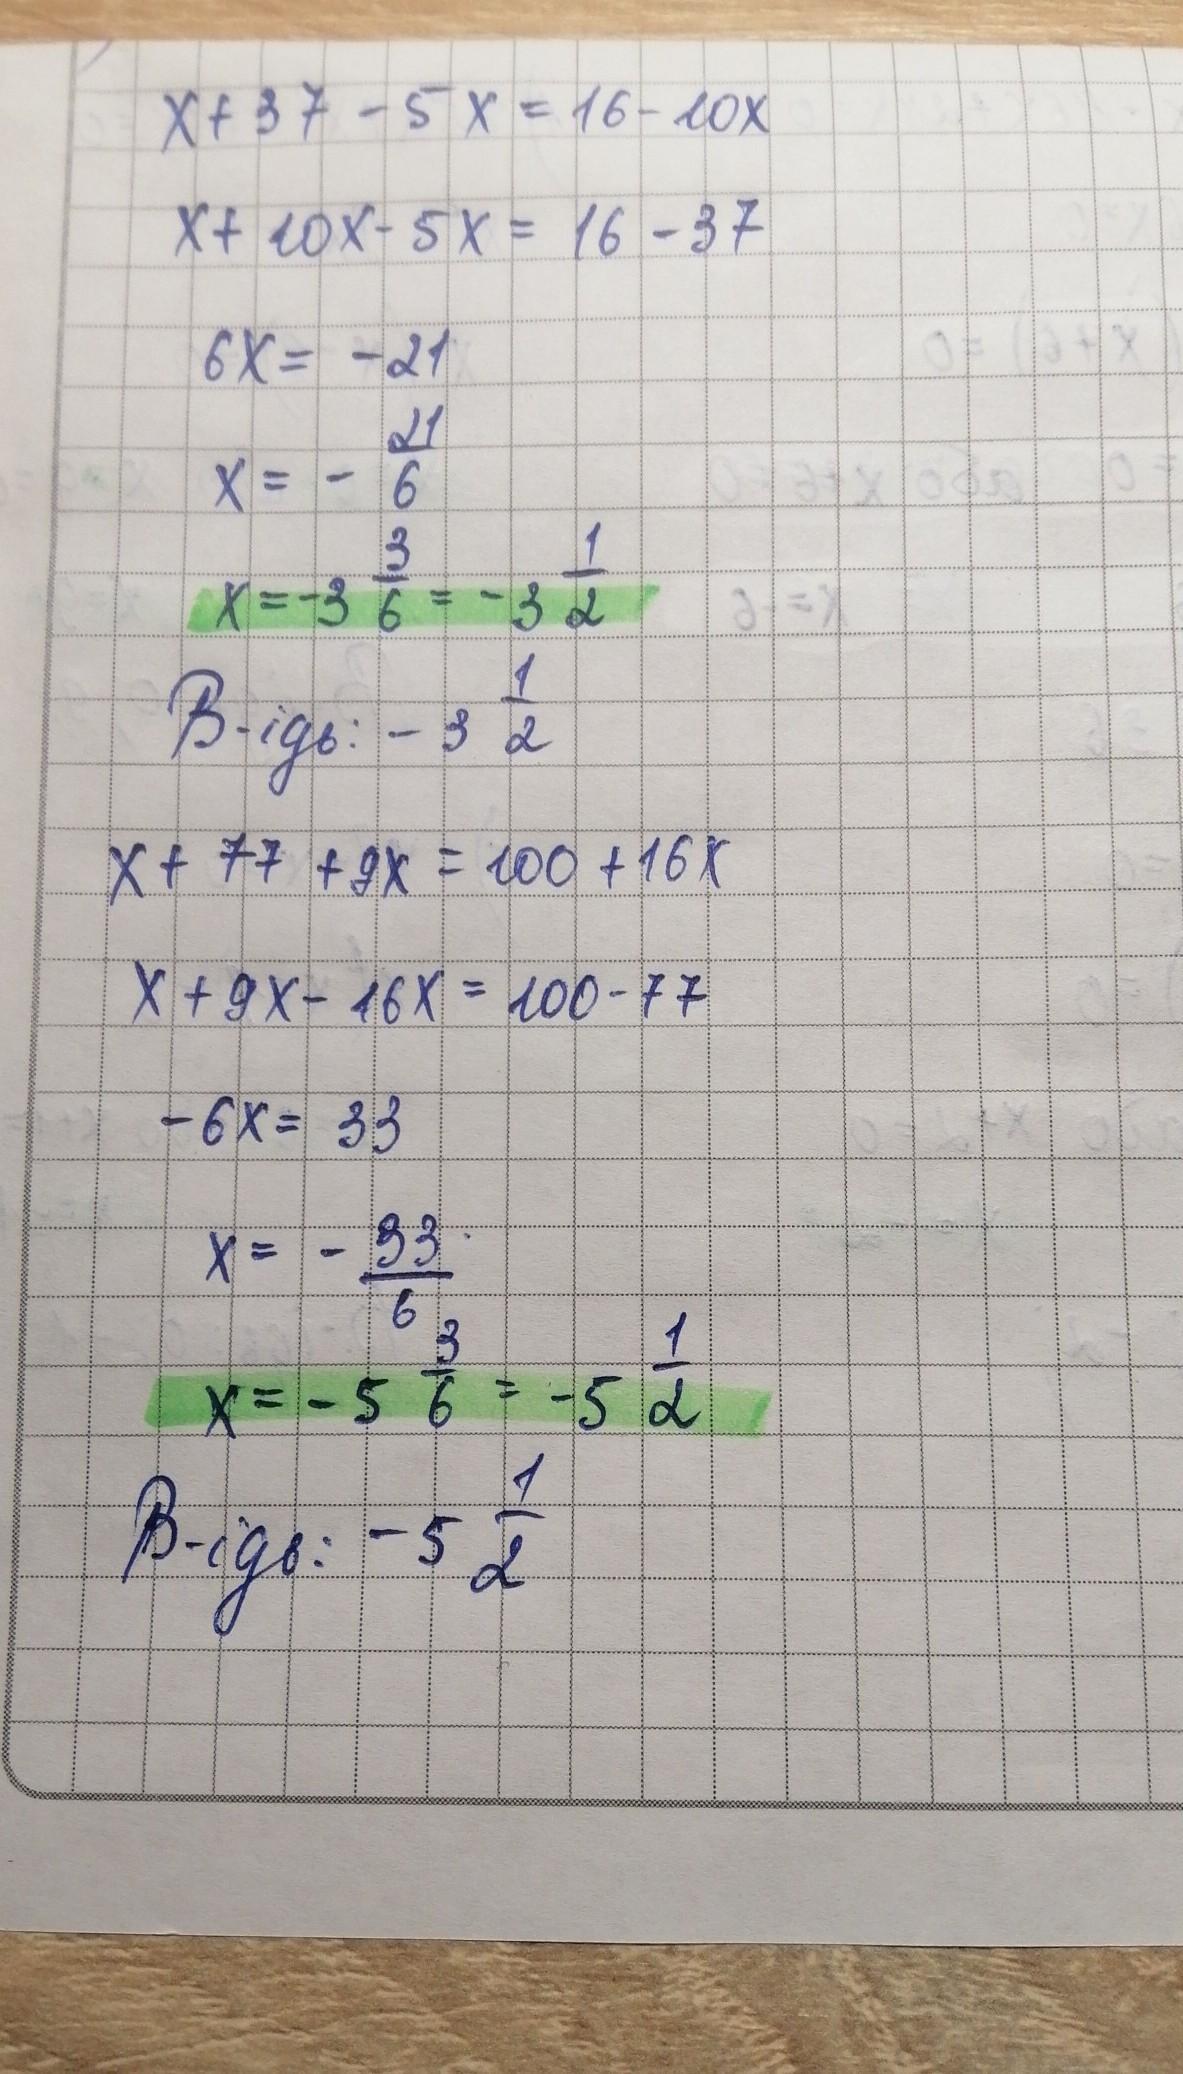 x + 37 - 5x = 16 - 10x
x + 10x - 5x = 16 - 37
6x = -21
x = - 21/6
x = -3 3/6 = -3 1/2
В-ідь: - 3 1/2
x + 77 + 9x = 100 + 16x
x + 9x - 16x = 100 - 77
-6x = 33
x = - 33/6
x = -5 3/6 = -5 1/2
В-ідь: -5 1/2